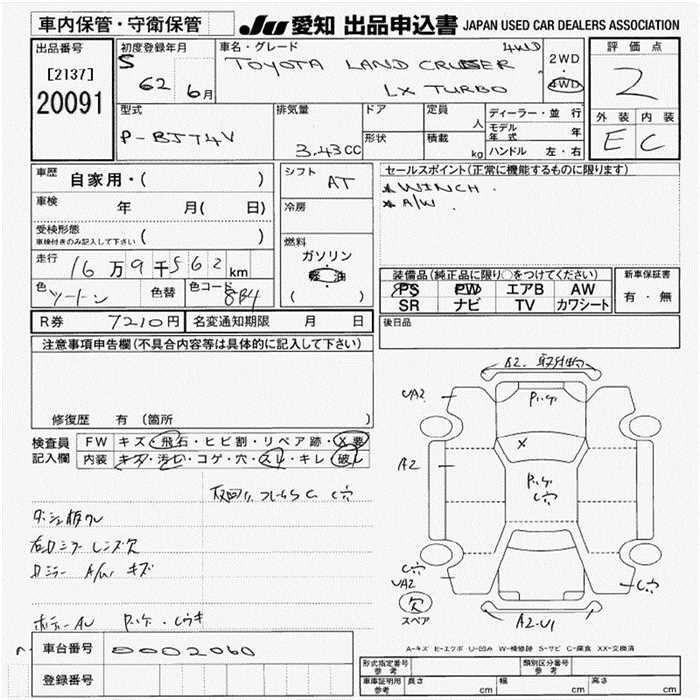 車内保管・守衛保管
JU 愛知 出品申込書 JAPAN USED CAR DEALERS ASSOCIATION
出品番号
[2137]
20091
初度登録年月
S 62 6月
車名・グレード
TOYOTA LAND CRUISER 4WD
LX TURBO
2WD
・
4WD
評価点
2
外装 内装
E C
型式
P-BJ74V
排気量
3.43CC
ドア
形状
定員
人
積載
kg
ディーラー・並行
モデル年式 年
ハンドル 左・右
車歴
自家用・( )
車検
年 月( 日)
受検形態
車検付きのみ記入して下さい ( )
走行
16万9千562km
色
ツートン
色替
色コード
8B4
シフト
AT
冷房
燃料
ガソリン
軽油
( )
セールスポイント(正常に機能するものに限ります)
*WINCH.
*A/W.
装備品(純正品に限り○をつけてください)
PS PW エアB AW
SR ナビ TV カワシート
新車保証書
有・無
後日品
R券 7210円
名変通知期限 月 日
注意事項申告欄(不具合内容等は具体的に記入して下さい)
修復歴 有(箇所 )
検査員
記入欄
FW キズ・飛石・ヒビ割・リペア跡・X要
内装 キズ・汚れ・コゲ・穴・スレ・キレ・破れ
右ロミラーレンズ欠
ロミラー A/W キズ
A2
UA2
A2
X
C穴
C穴
UA2
C穴
欠
スペア
A2-U1
A-キズ E-エクボ U-凹み W-補修跡 S-サビ C-腐食 XX-交換済
車台番号
0002060
登録番号
形式指定番号
参考
類別区分番号
参考
車庫証明用
参考
長さ cm
幅 cm
高さ cm